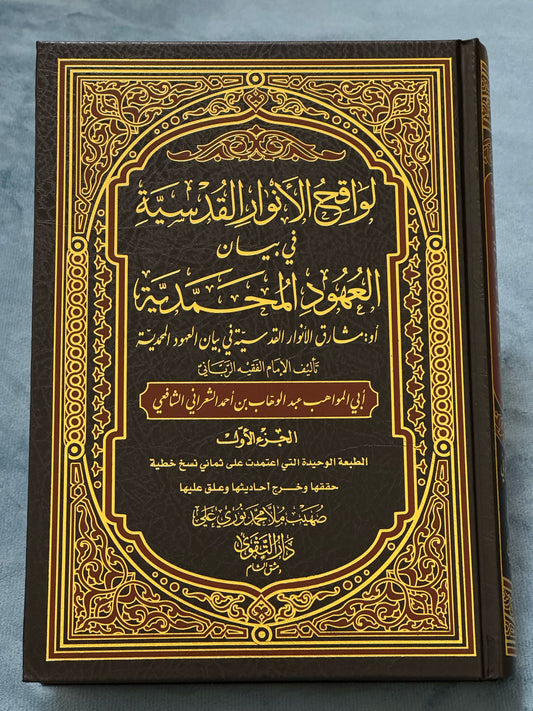 لواقح الأنوار القدسية
في بيان
العهود المحمدية
أو: مشارق الأنوار القدسية في بيان العهود المحمدية
تأليف الإمام الفقيه الرباني
أبي المواهب عبد الوهاب بن أحمد الشعراني الشافعي
الجزء الأول
الطبعة الوحيدة التي اعتمدت على ثماني نسخ خطية
حققها وخرج أحاديثها وعلق عليها
صهيب ملا محمد نوري علي
دار التقوى
دمشق الشام